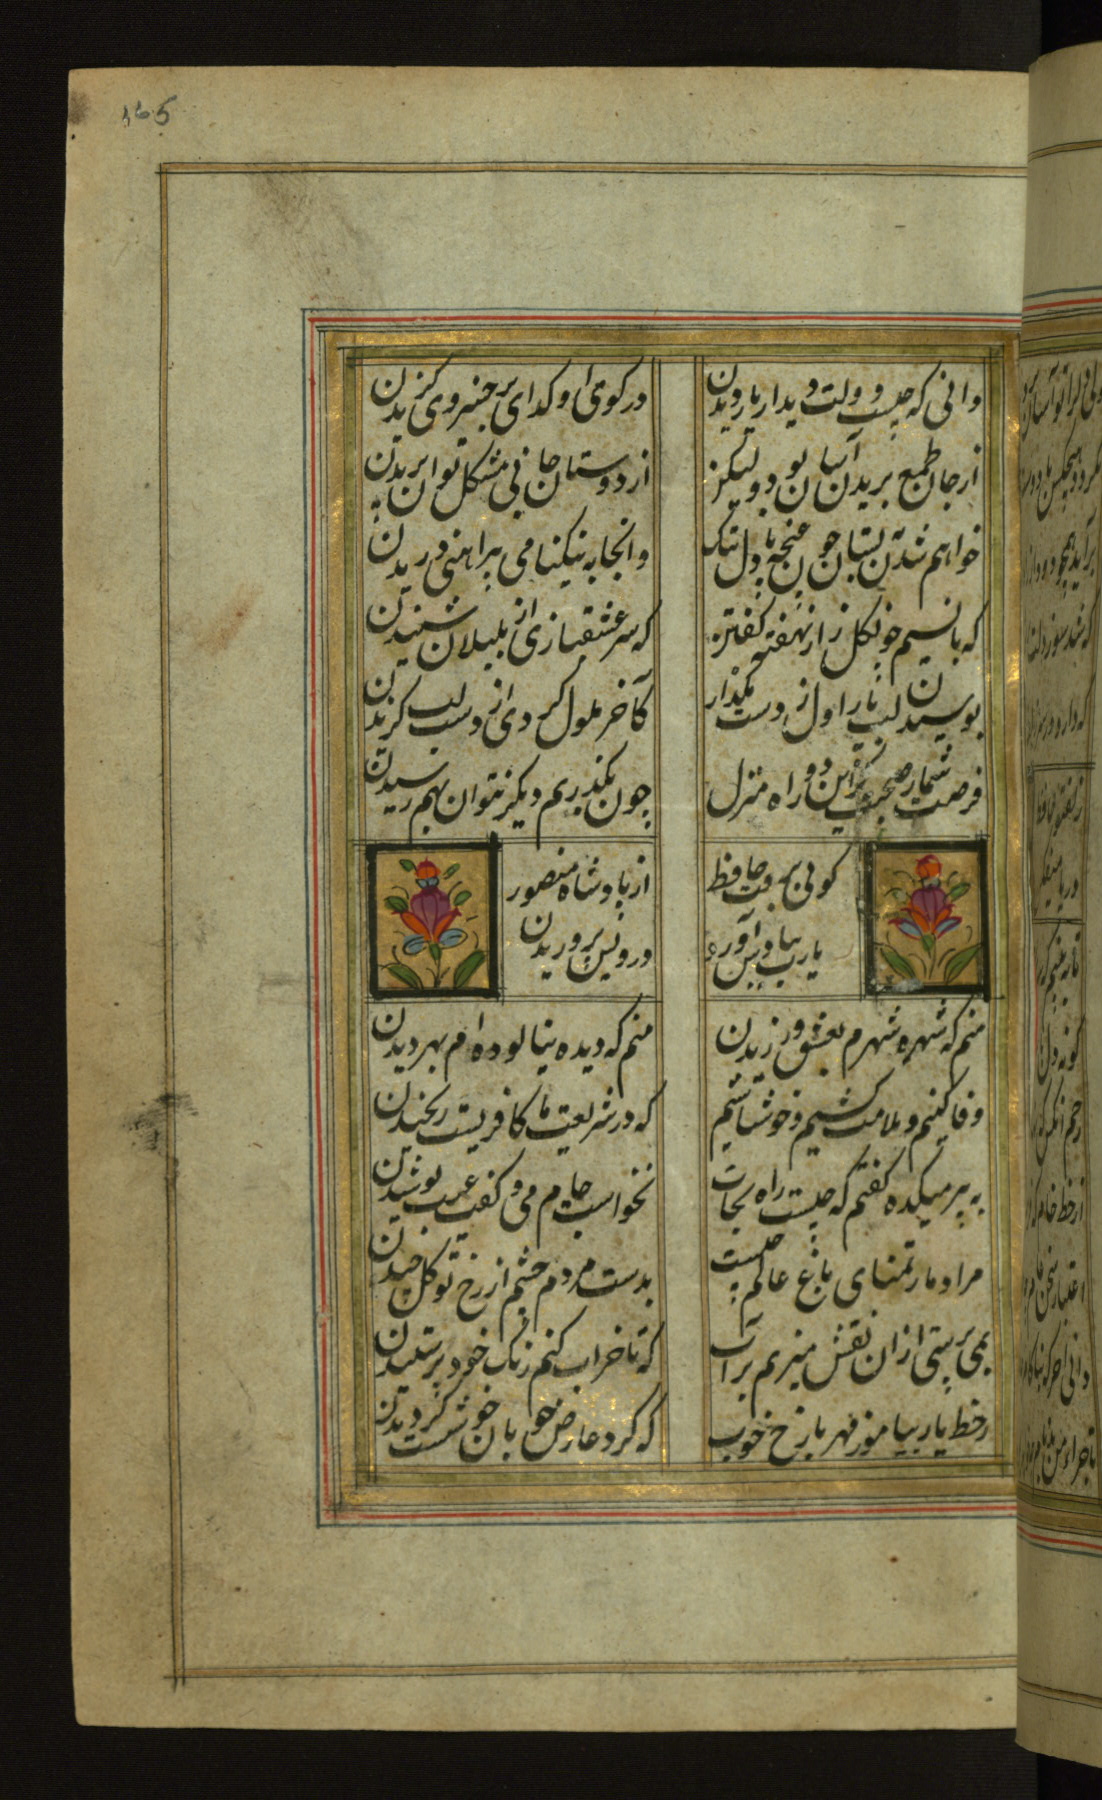 165
دانی که چیست دولت دیدار یار دیدن
در کوی او گدایی بر خسروی گزیدن
از جان طمع بریدن آسان بود ولیکن
از دوستان جانی مشکل توان بریدن
خواهم شدن ببستان چون غنچه با دل تنگ
وانجا به نیکنامی پیراهنی دریدن
که با نسیم چون گل راز نهفته گفتن
که سر عشقبازی از بلبلان شنیدن
بوسیدن لب یار اول ز دست مگذار
کآخر ملول گردی از دست لب گزیدن
فرصت شمار صحبت کزین دو راه منزل
چون بگذریم دیگر نتوان بهم رسیدن
گویی برفت حافظ
از پادشاه منصور
یارب بیادش آور
درویش پروریدن
منم که شهره شهرم بعشق ورزیدن
منم که دیده نیالوده ام ببد دیدن
وفا کنیم و ملامت کشیم و خوش باشیم
که در شریعت ما کافریست رنجیدن
به پیر میکده گفتم که چیست راه نجات
نخواست جام می و گفت عیب پوشیدن
مراد ما ز تمنای باغ عالم چیست
بدست مردم چشم از رخ تو گل چیدن
بمی پرستی از ان نقش میزنم بر آب
که تا خراب کنم رنگ خود پرستیدن
ز خط یار بیاموز مهر با رخ خوب
که گرد عارض خوبان خوشست گردیدن